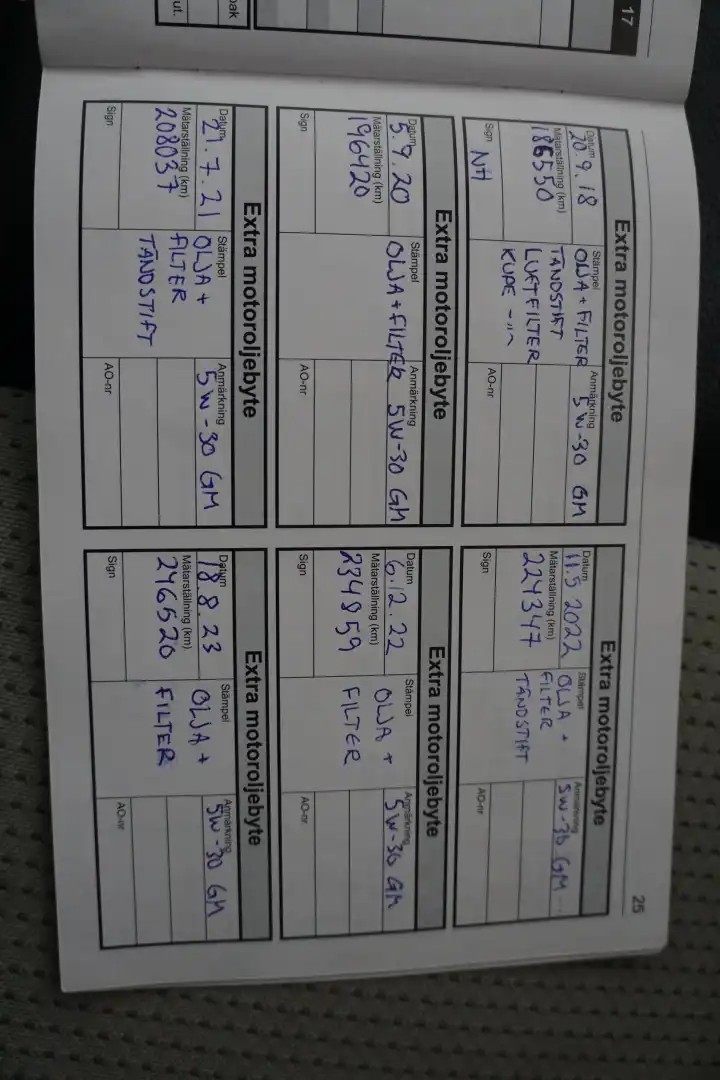 17
25
Extra motoroljebyte
Datum
20.9.18
Mätarställning (km)
186550
Sign
NH
Stämpel
OLJA + FILTER
TÄNDSTIFT
LUFTFILTER
KUPE -"-
Anmärkning
5W-30 GM
AO-nr
Extra motoroljebyte
Datum
5.9.20
Mätarställning (km)
196420
Sign
Stämpel
OLJA + FILTER
Anmärkning
5W-30 GM
AO-nr
Extra motoroljebyte
Datum
21.7.21
Mätarställning (km)
208037
Sign
Stämpel
OLJA +
FILTER
TÄNDSTIFT
Anmärkning
5W-30 GM
AO-nr
Extra motoroljebyte
Datum
11.5 2022
Mätarställning (km)
224347
Sign
Stämpel
OLJA +
FILTER
TÄNDSTIFT
Anmärkning
5W-30 GM
AO-nr
Extra motoroljebyte
Datum
6.12.22
Mätarställning (km)
234859
Sign
Stämpel
OLJA +
FILTER
Anmärkning
5W-30 GM
AO-nr
Extra motoroljebyte
Datum
18.8.23
Mätarställning (km)
246520
Sign
Stämpel
OLJA +
FILTER
Anmärkning
5W-30 GM
AO-nr